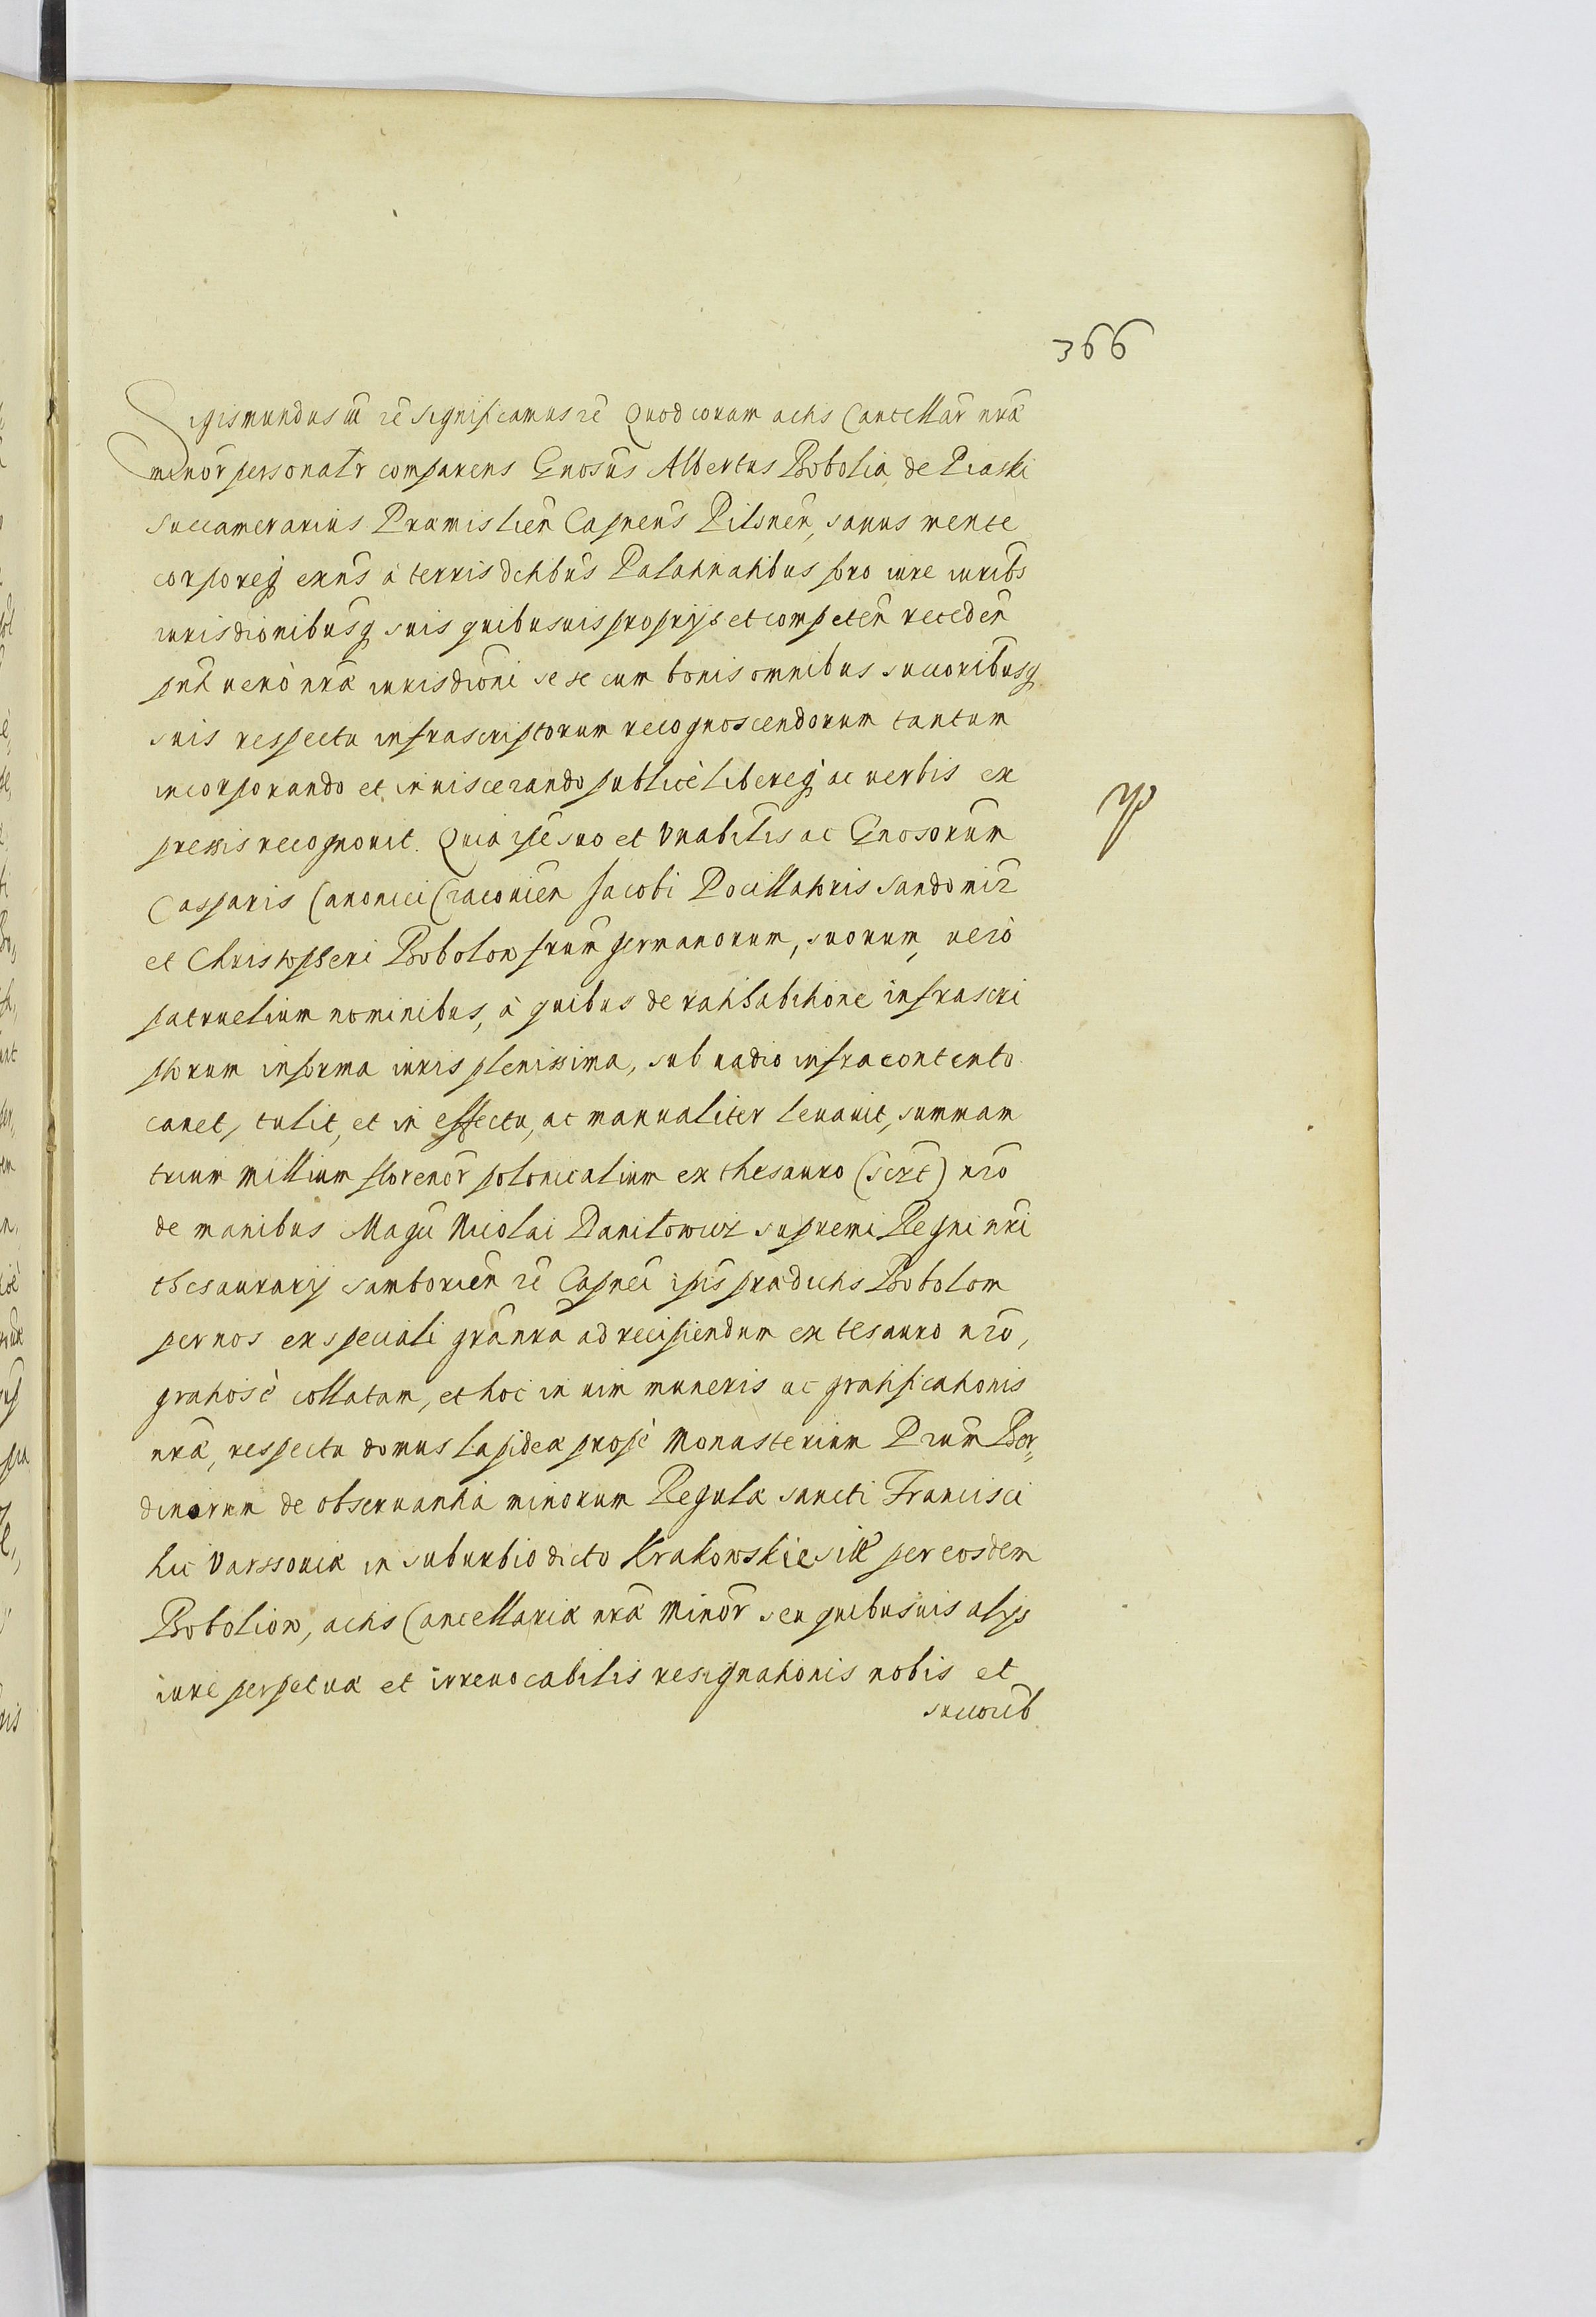 366
Sigismundus III zc̃ significamus zc̃ Quod coram actis Cancellar̃ nrã
minor̃ personatr̃ comparens Gnosũs Albertus Bobolia de Piaski
succamerarius Præmislien̄ Capnẽus Pilsnen̄, sanus mente
corporeq̃ exñs à terris dictibũs Palatinatibus foro iure iuribs
iurisdionibusq̃ suis quibusuis proprijs et competen̄ receden̄
pñti uerò nræ̃ iurisdioñi se se cum bonis omnibus succoribusq̃
suis respectu infrascriptorum recognoscendorum tantum
incorporando et inuiscerando publicè libereq̃ ac uerbis ex
pressis recognouit. Quia ipse suo et Vnabilis ac Gnosorum̃
Casparis Canonici Cracouien̄ Jacobi Pocillatoris Sandomir̃
et Christopheri Bobolow frum̃ germanorum, suorum, uerò
patruelium nominibus, à quibus de rathihabitione infrascri
ptorum in forma iuris plenissima, sub uadio infracontento
cauet, tulit, et in effectu, ac manualiter leuauit, summam
trium millium florenor̃ polonicalium ex thesauro (scrt̃) nrõ
de manibus Magcī Nicolai Danilowicz supremi Regni nr̃i
thesaurarij samborien̄ zc̃ Capnei̇̃ ipis̃ prædictis Bobolom
per nos ex speciali grã nrã ad recipiendum ex tesauro nrõ,
gratiosè collatam, et hoc in uim muneris ac gratificationis
nræ̃, respectu domus lapideæ propè Monasterium Prum̃ Ber„
dinorum de obseruantia minorum Regulæ sancti Francisci
hic Varssouiæ in suburbio dicto Krakowskie sitæ per eosdem
Boboliow, actis Cancellariæ nræ̃ Minor̃ seu quibusuis alijs
iure perpetuæ et irreuocabilis resignationis nobis et
succorib̃